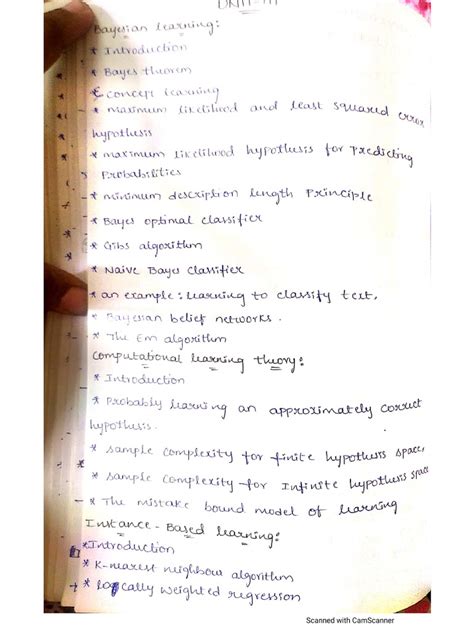 UNIT-III
Bayesian learning:
* Introduction
* Bayes theorem
* concept learning
* maximum likelihood and least squared error
hypothesis
* maximum likelihood hypothesis for predicting
Probabilities
* minimum description length Principle
* Bayes optimal classifier
* Gibs algorithm
* Naive Bayes classifier
* an example: learning to classify text.
* Bayesian belief networks.
* The Em algorithm
Computational learning theory:
* Introduction
* Probably learning an approximately correct
hypothesis.
* sample complexity for finite hypothesis space,
* sample complexity for Infinite hypothesis space
* The mistake bound model of learning
Instance-Based learning:
* Introduction
* K-nearest neighbour algorithm
* locally weighted regression
Scanned with CamScanner